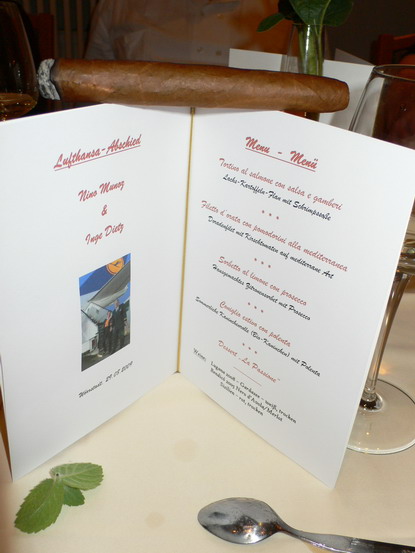 Lufthansa-Abschied
Nino Munoz
&
Inge Dietz
29.08.2009
Menu - Menü
Tortino al salmone con salsa e gamberi
Lachs-Kartoffeln-Flan mit Schrimpssoße
* * *
Filetto d´orata con pomodorini alla mediterranea
Doradenfilet mit Kirschtomaten auf mediterrane Art
* * *
Sorbetto al limone con prosecco
Hausgemachtes Zitronensorbet mit Prosecco
* * *
Coniglio estivo con polenta
Sommerliche Kaninchenrolle (Bio-Kaninchen) mit Polenta
* * *
Dessert „La Passione"
Weine:
Lugana 2008 - Gardasee - weiß, trocken
Sizilien - rot, trocken